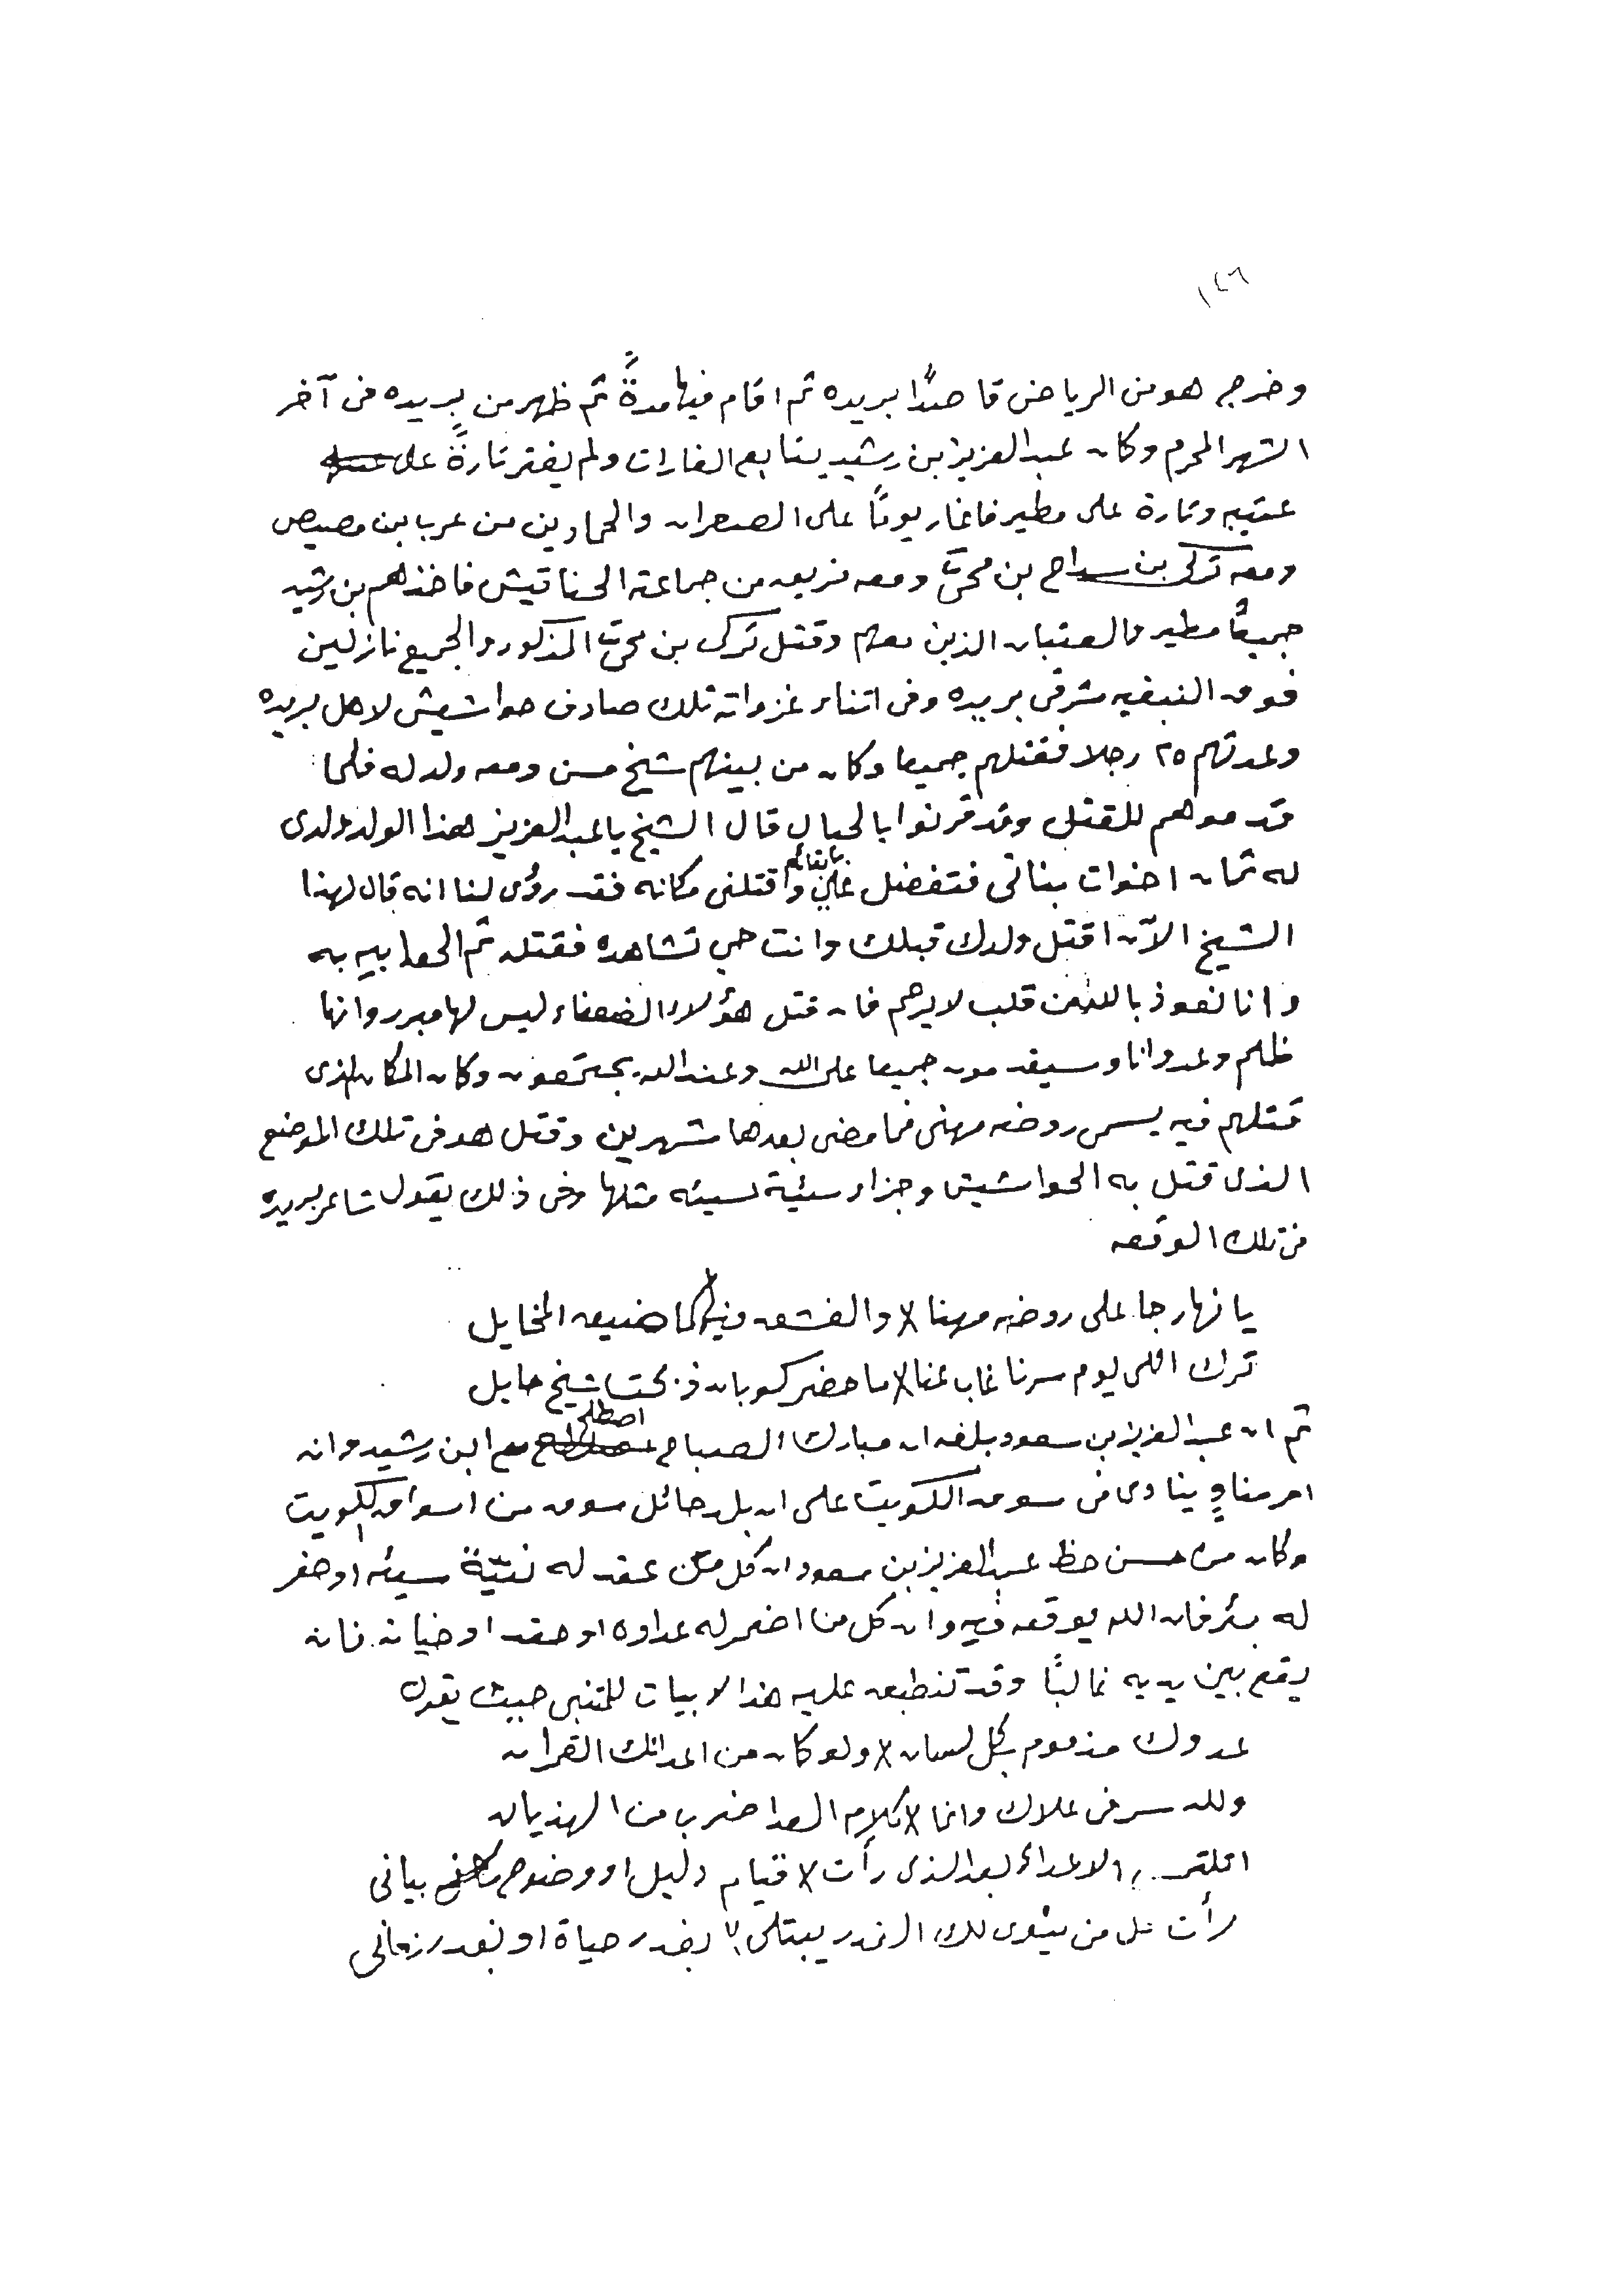 ١٤٦
وخرج هو من الرياض قاصدًا بريده ثم اقام فيها مدةً ثم ظهر من بريده في آخر
الشهر المحرم وكان عبد العزيز بن رشيد يتابع الغارات ولم يفتر تارةً على
عتيبه وتارة على مطير فاغار يومًا على الصعران والحمادين من عرب بن مصيص
ومعه تركي بن سداح بن محيَّا ومعه فريق من جماعته الحناتيش فاخذهم بن رشيد
جميعًا مطير والعتبان الذين معهم وقتل تركي بن محيَّا المذكور والجميع نازلين
فوق النبقيه شرقي بريده وفي اثناء غزواته تلك صادف حواشيش لاهل بريده
وعدتهم ٢٥ رجلا فقتلهم جميعا وكان من بينهم شيخ مسن ومعه ولد له فلما
قدموهم للقتل وقد قرنوا بالحبال قال الشيخ يا عبد العزيز هذا الولد ولدي
له ثمان اخوات بناتي فتفضل علي بابقائه واقتلني مكانه فقد رؤي لنا انه قال لهذا
الشيخ الآن اقتل ولدك قبلك وانت حي تشاهده فقتله ثم الحق ابيه به
وانا نعوذ بالله من قلب لا يرحم فان قتل هؤلاء الضعفاء ليس لها مبرر وانها
ظلم وعدوانا وسيقدمون جميعا على الله وعند الله يجتمعون وكان المكان الذي
قتلهم فيه يسمى روضة مهنى فما مضى بعدها شهرين وقتل هو في تلك الموضع
الذي قتل به الحواشيش وجزاء سيئة سيئه مثلها وفي ذلك يقول شاعر بريده
في تلك الوقعه
يا نهار جا على روضه مهنا × والفشق فيه كما ضيق المخايل
ترك اللي يوم سرنا غاب عنا × ما حضر كوبان ذبحة شيخ حايل
ثم ان عبد العزيز بن سعود بلغه ان مبارك الصباح اصطلح مع ابن رشيد وانه
امر منادٍ ينادي في سوق الكويت على ان بلد حائل سوق من اسواق الكويت
وكان من حسن حظ عبد العزيز بن سعود ان كل من عقد له نيّة سيئه او حفر
له بئر فان الله يوقعه فيه وان كل من اضمر له عداوه او حقد او خيانه فانه
يقع بين يديه غالبًا وقد تنطبق عليه هذا الابيات للمتنبي حيث يقول
عدوك مذموم بكل لسان × ولو كان من اعدائك القمران
ولله سر في علاك وانما × كلام العدا ضرب من الهذيان
اتلتمس الاعداء بعد الذي رأت × قيام دليل او وضوح بياني
رأت كل من ينوى لك الغدر يبتلى × بغدر حياة او بغدر زماني